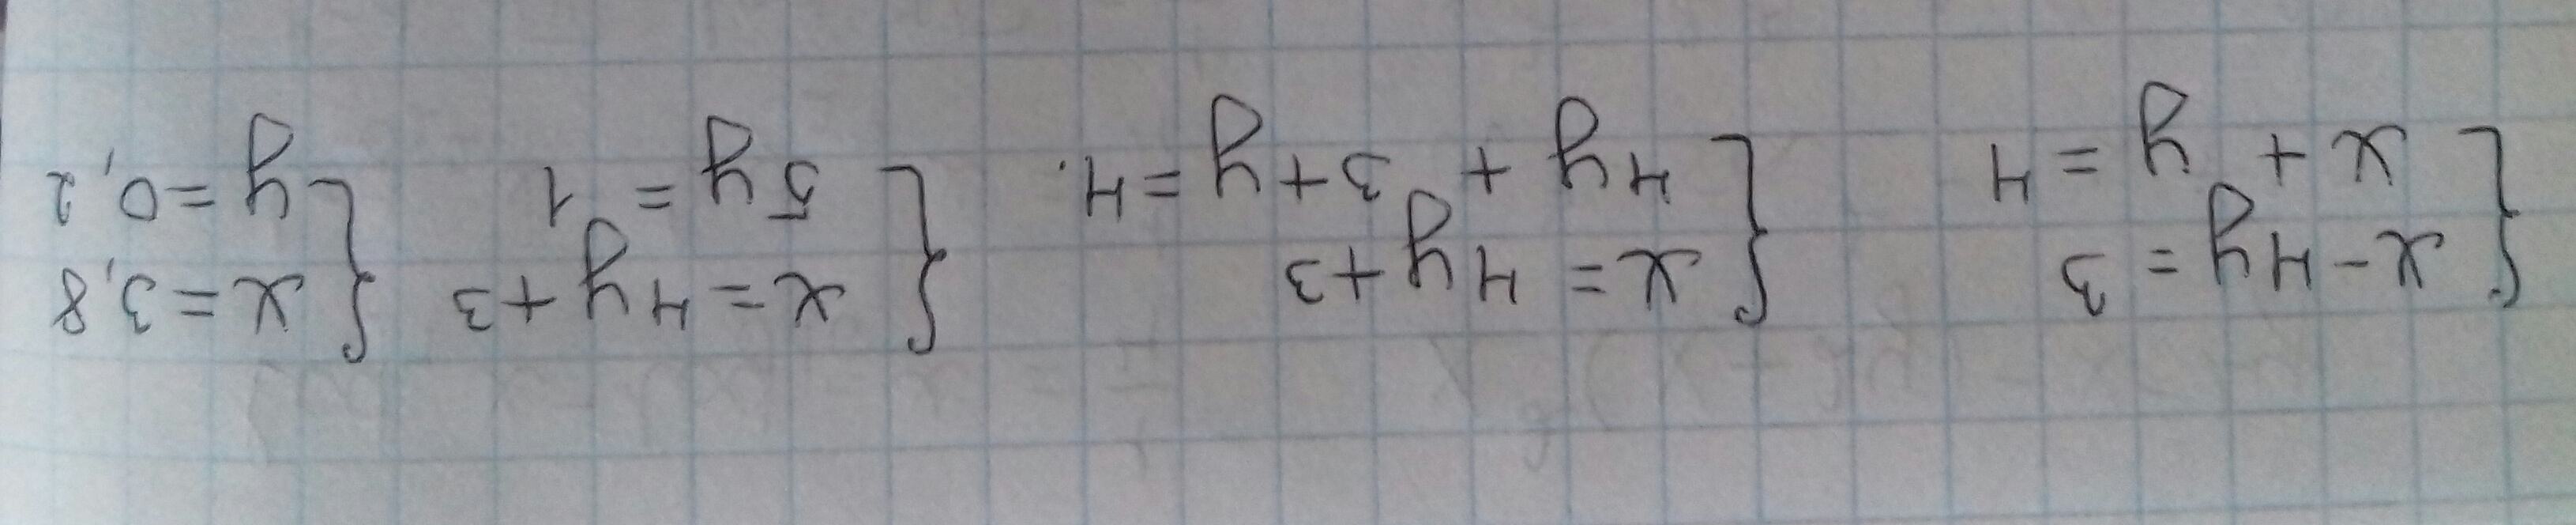 { x-4y=3
x+y=4
{ x=4y+3
4y+3+y=4.
{ x=4y+3
5y=1
{ x=3,8
y=0,2